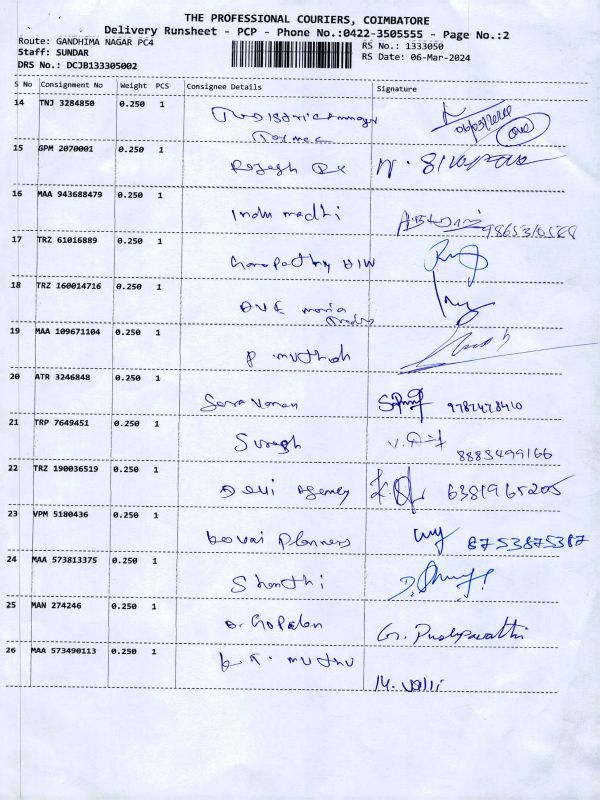 THE PROFESSIONAL COURIERS, COIMBATORE
Delivery Runsheet - PCP - Phone No.:0422-3505555 - Page No.:2
Route: GANDHIMA NAGAR PC4
RS No.: 1333050
Staff: SUNDAR
RS Date: 06-Mar-2024
DRS No.: DCJB133305002
S No Consignment No Weight PCS Consignee Details Signature
14 TNJ 3284850 0.250 1
15 GPM 2070001 0.250 1
Rajesh
16 MAA 943688479 0.250 1
Indu madhi
17 TRZ 61016889 0.250 1
18 TRZ 160014716 0.250 1
19 MAA 109671104 0.250 1
P. muthiah
20 ATR 3246848 0.250 1
Saravanan
21 TRP 7649451 0.250 1
Suresh
8883499166
22 TRZ 190036519 0.250 1
Delli agency 6381965205
23 VPM 5180436 0.250 1
kovai planners 8753875387
24 MAA 573813375 0.250 1
Shanthi
25 MAN 274246 0.250 1
G. Gopalan G. Pushpavathi
26 MAA 573490113 0.250 1
K. K. muthu
M. Valli